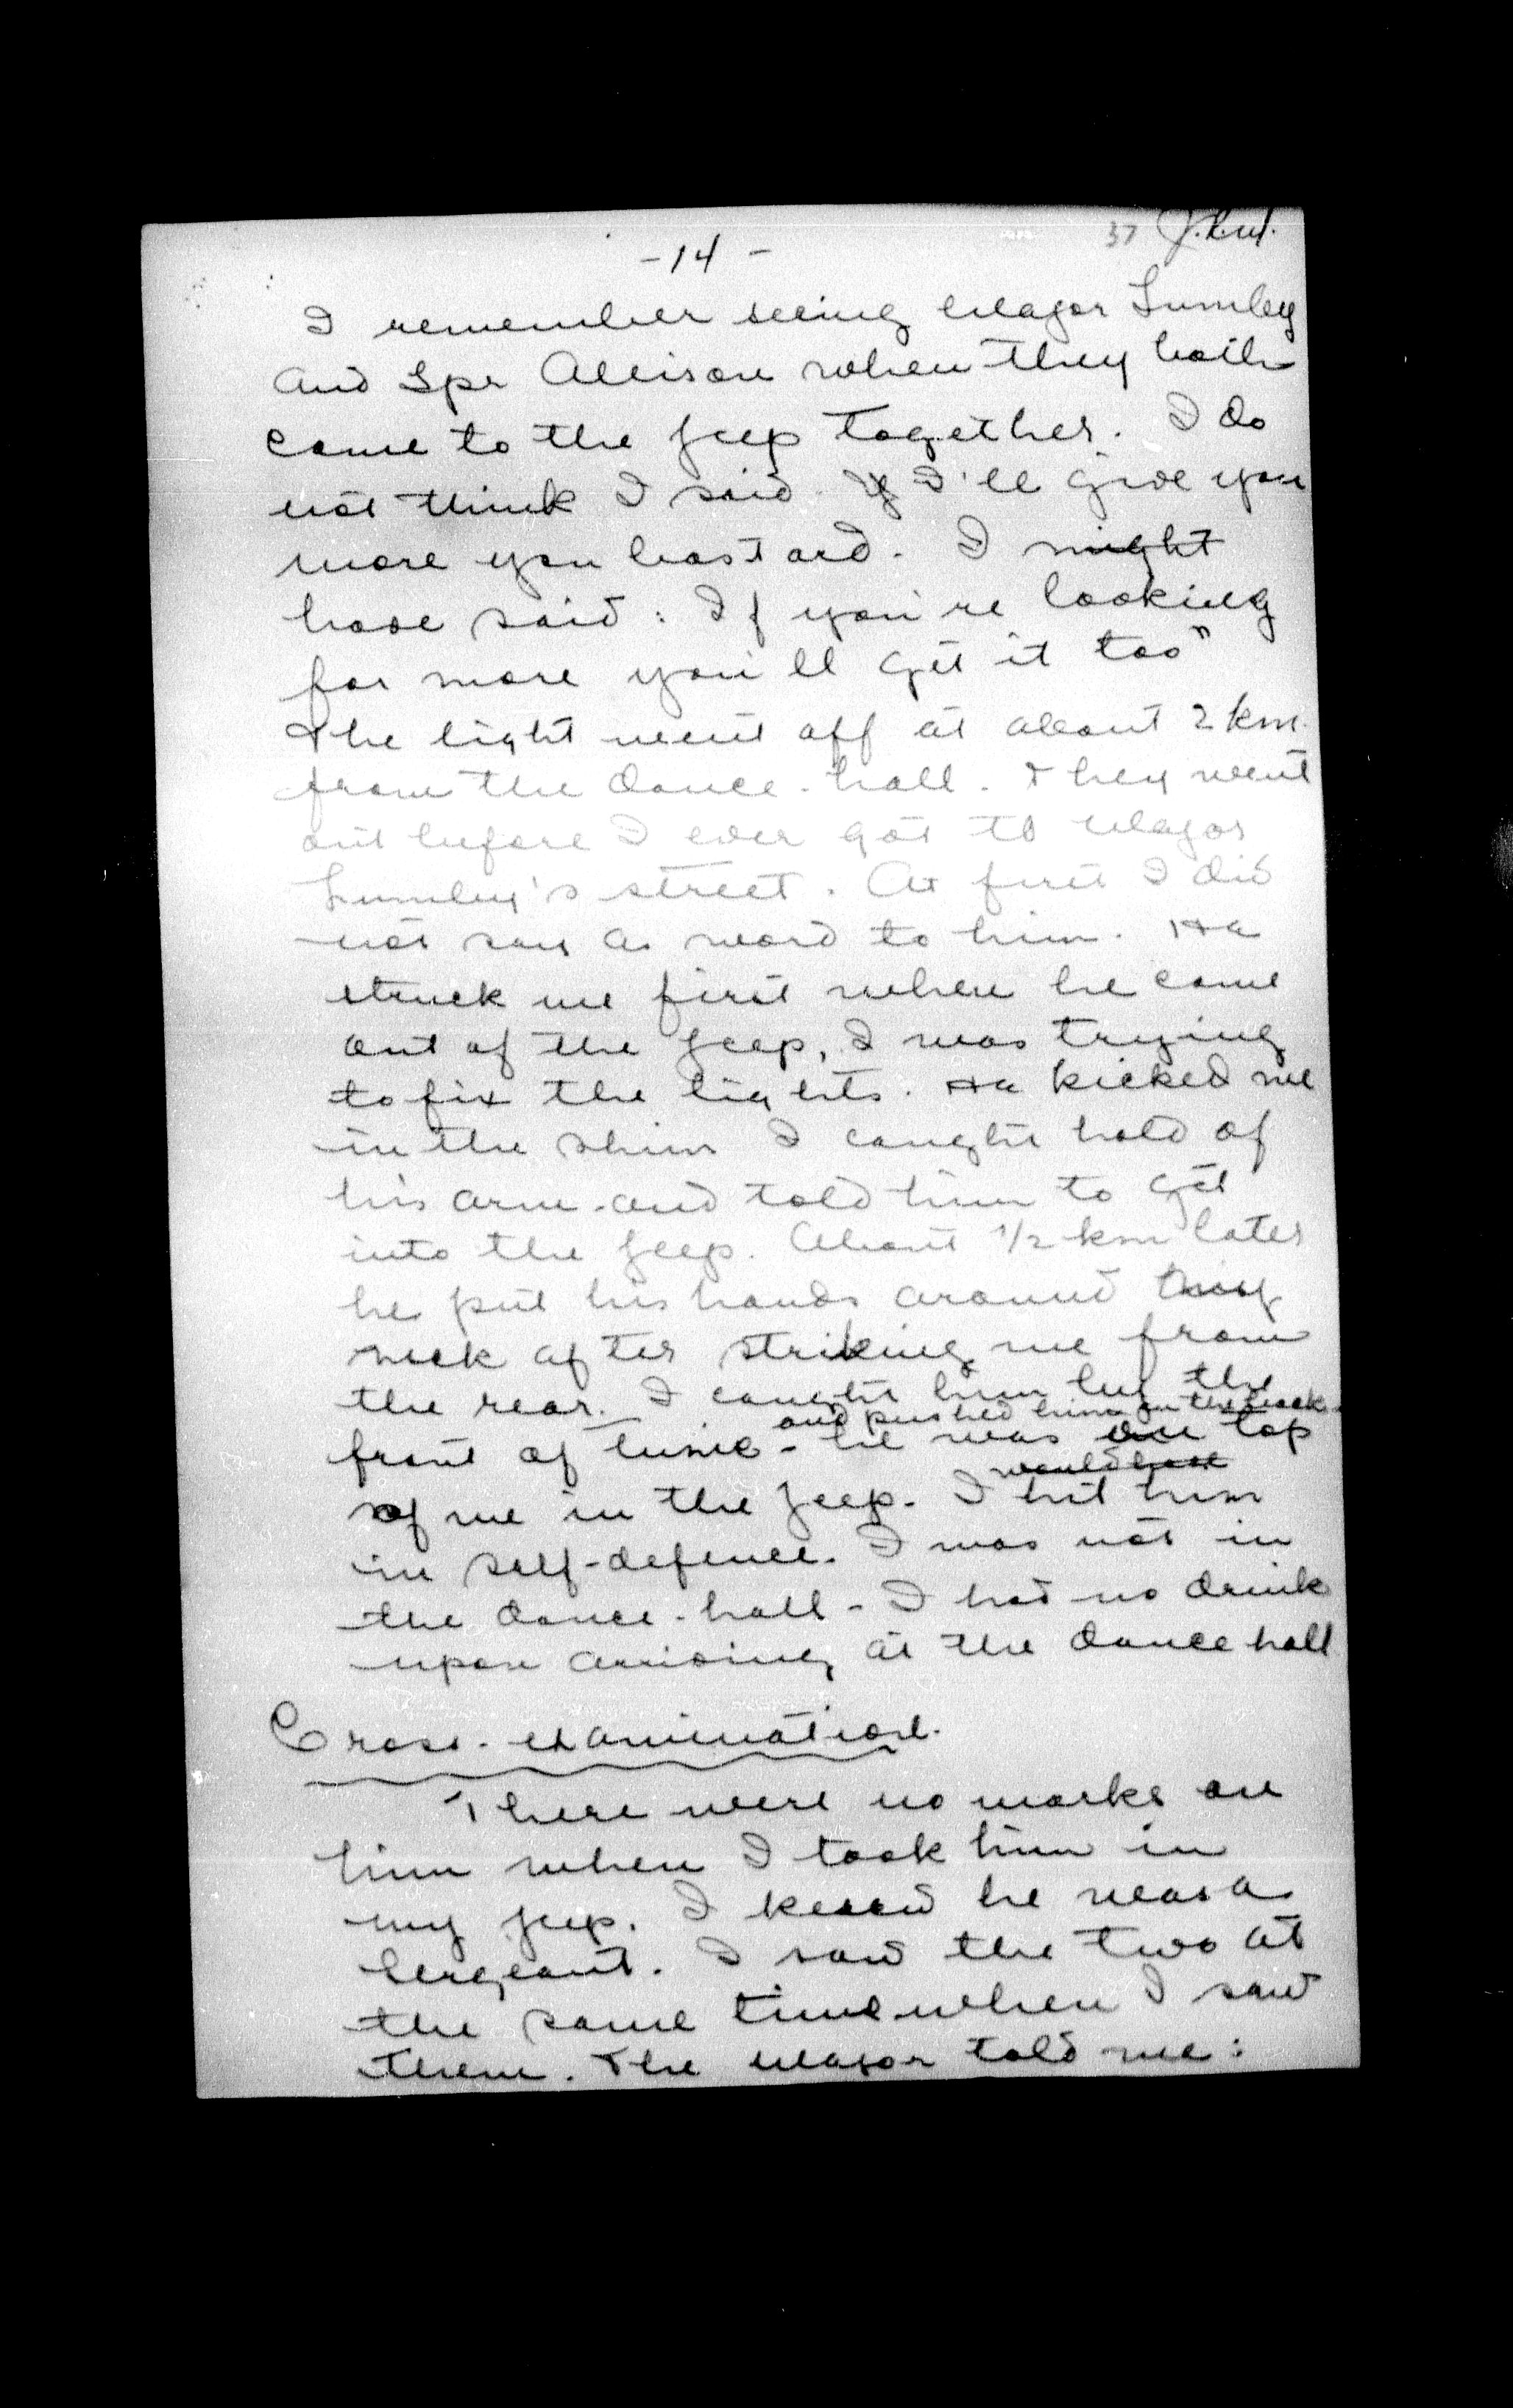 -14-
37
I remember seeing Major Lumley
and Spr Allison when they both
came to the Jeep together. I do
not think I said I'll give you
more you bastard. I might
have said: If you're looking
for more you'll get it too"
The light went off at about 2 km.
from the dance-hall. They went
out before I ever got to Major
Lumley's street. At first I did
not say a word to him. He
struck me first when he came
out of the Jeep, I was trying
to fix the lights. He kicked me
in the shin I caught hold of
his arm and told him to get
into the Jeep. About 1/2 km later
he put his hands around my
neck after striking me from
the rear. I caught him by the
and pushed him in the back.
front of tunic - he was on top
would have
of me in the Jeep. I hit him
in self-defence. I was not in
the dance-hall - I had no drink
upon arriving at the dance hall
Cross-examination.
There were no marks on
him when I took him in
my jeep. I knew he was a
Sergeant. I saw the two at
the same time when I saw
them. The Major told me: